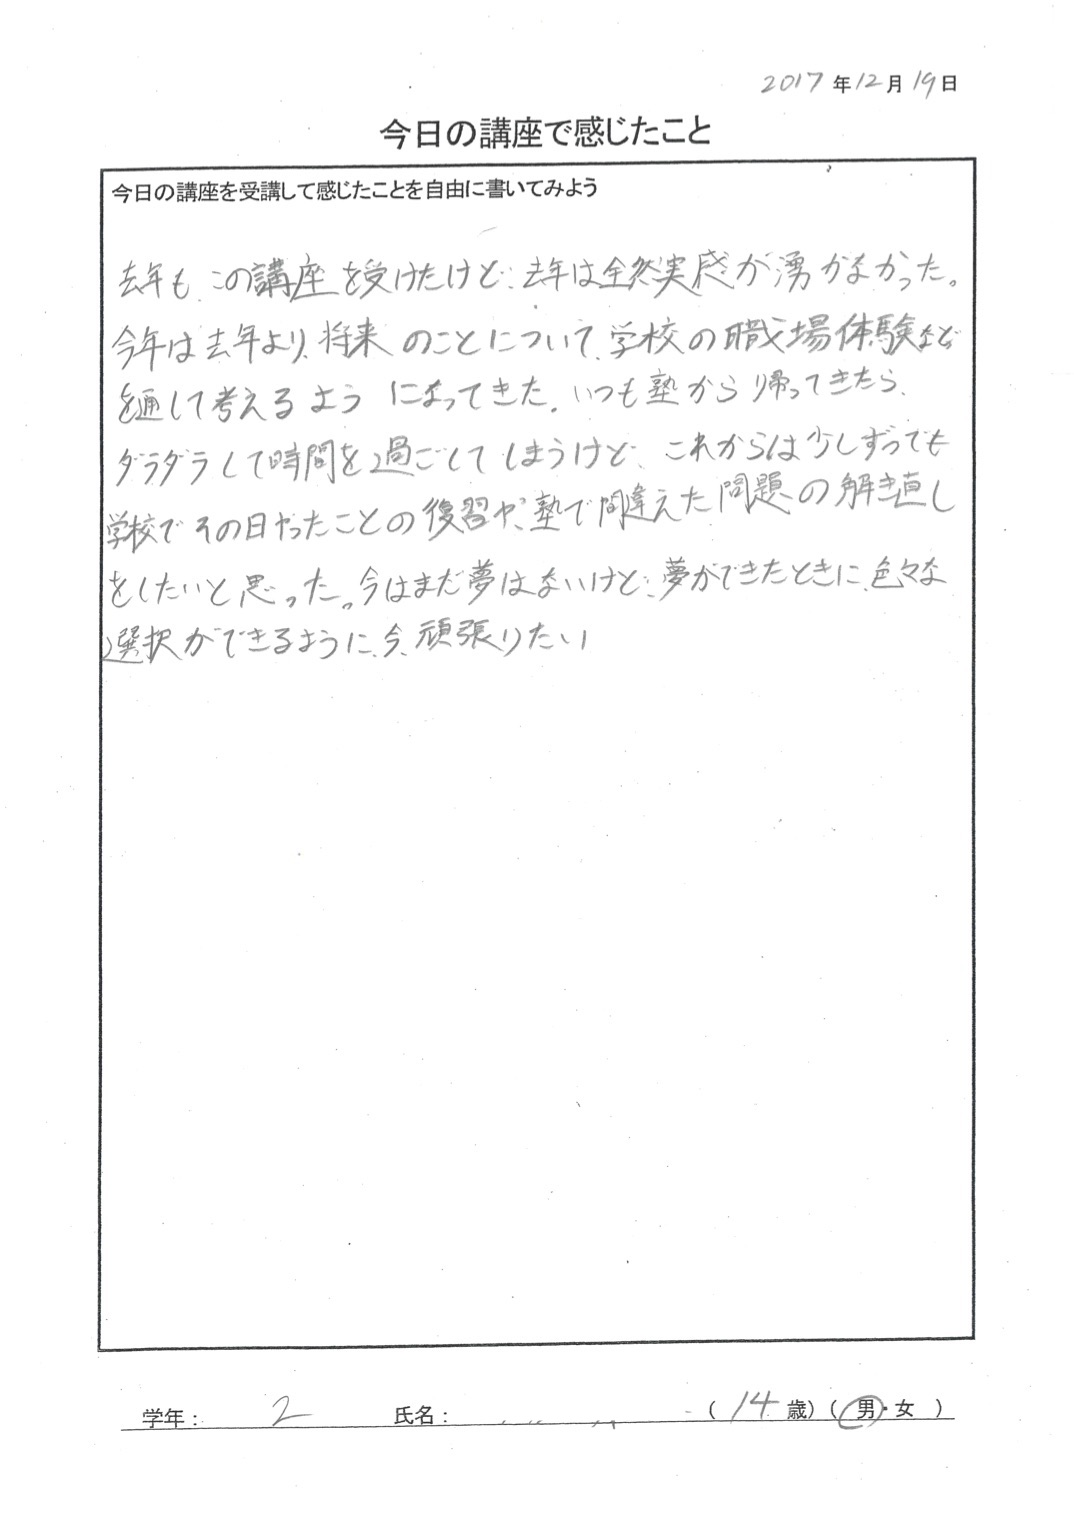 2017年12月19日
今日の講座で感じたこと
今日の講座を受講して感じたことを自由に書いてみよう
去年も、この講座を受けたけど、去年は全然実感が湧かなかった。
今年は去年より、将来のことについて、学校の職場体験など
を通して考えるようになってきた。いつも塾から帰ってきたら、
ダラダラして時間を過ごしてしまうけど、これからは少しずつでも
学校でその日やったことの復習や、塾で間違えた問題の解き直し
をしたいと思った。今はまだ夢はないけど、夢ができたときに、色々な
選択ができるように、今、頑張りたい
学年: 2 氏名: (14歳)(男・女)